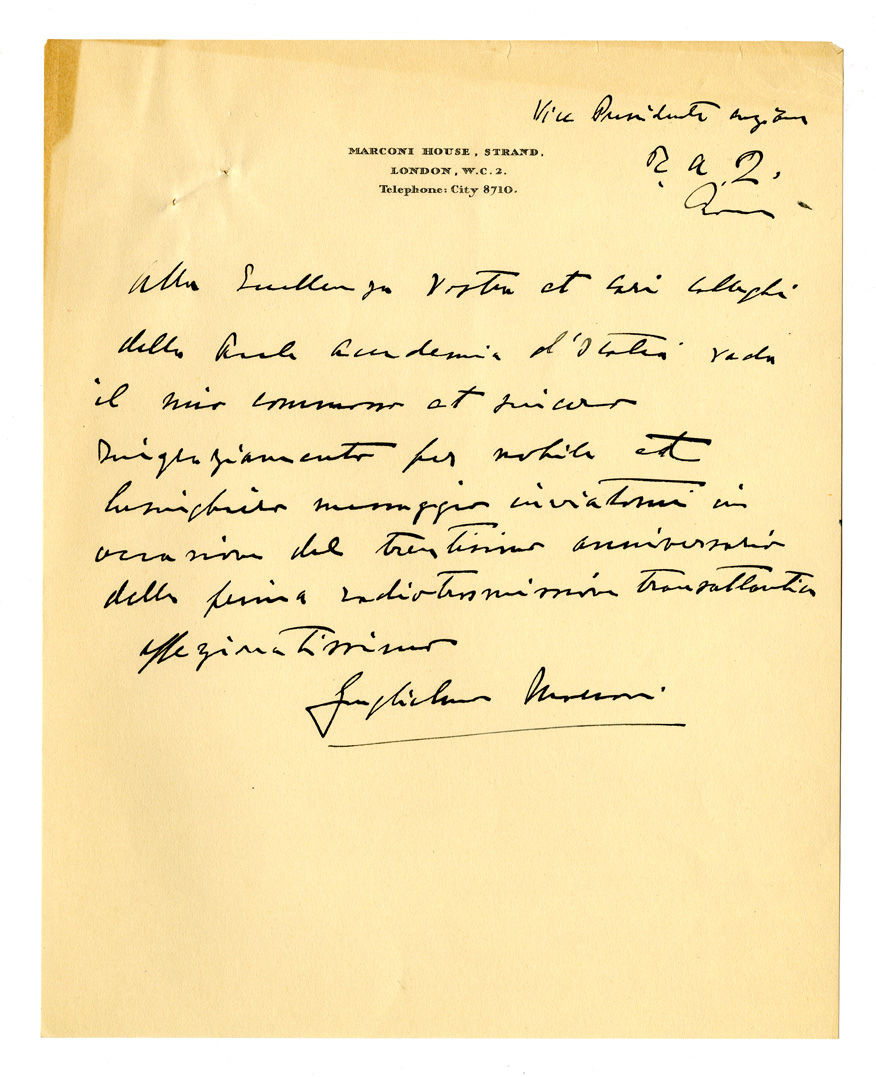 Vice Presidente anziano
MARCONI HOUSE, STRAND,
LONDON, W.C.2.
Telephone: City 8710.
R. A. I.
Roma
Alla Eccellenza Vostra et cari colleghi
della Reale Accademia d'Italia vada
il mio commosso et sincero
ringraziamento per nobile et
lusinghiero messaggio inviatomi in
occasione del trentesimo anniversario
della prima radiotrasmissione transatlantica
affezionatissimo
Guglielmo Marconi